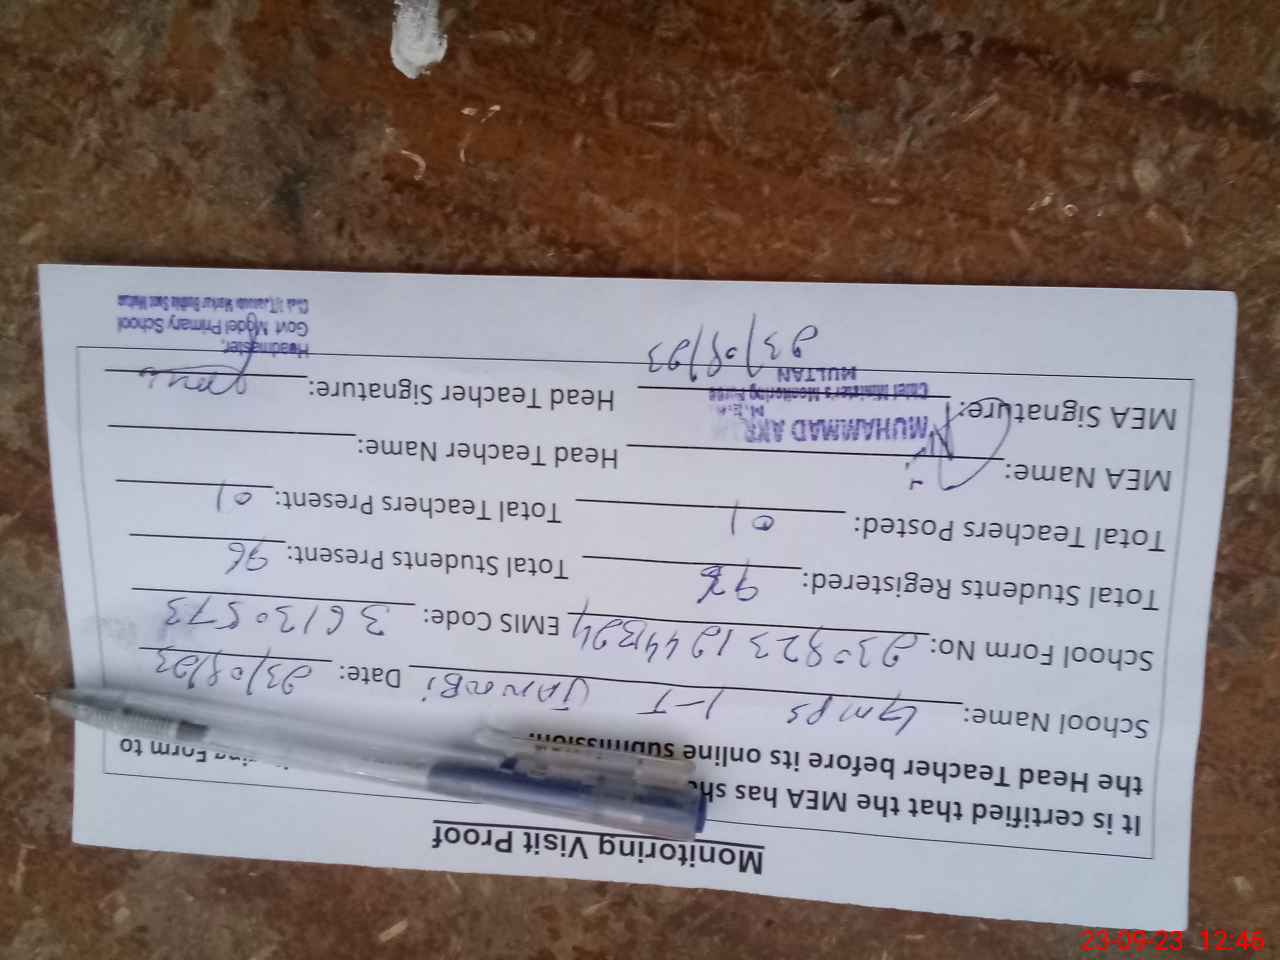 Monitoring Visit Proof
It is certified that the MEA has sh ing Form to
the Head Teacher before its online submission.
School Name: GMPS 1-T JANGABI Date: 23/08/23
School Form No: EMIS Code: 36130573
Total Students Registered: 96 Total Students Present: 96
Total Teachers Posted: 01 Total Teachers Present: 01
MEA Name: Head Teacher Name:
MUHAMMAD
MEA Signature: Head Teacher Signature:
Chief Minister's Monitoring Force
MULTAN
23/08/23
Headmaster,
Govt Model Primary School
23-09-23 12:46